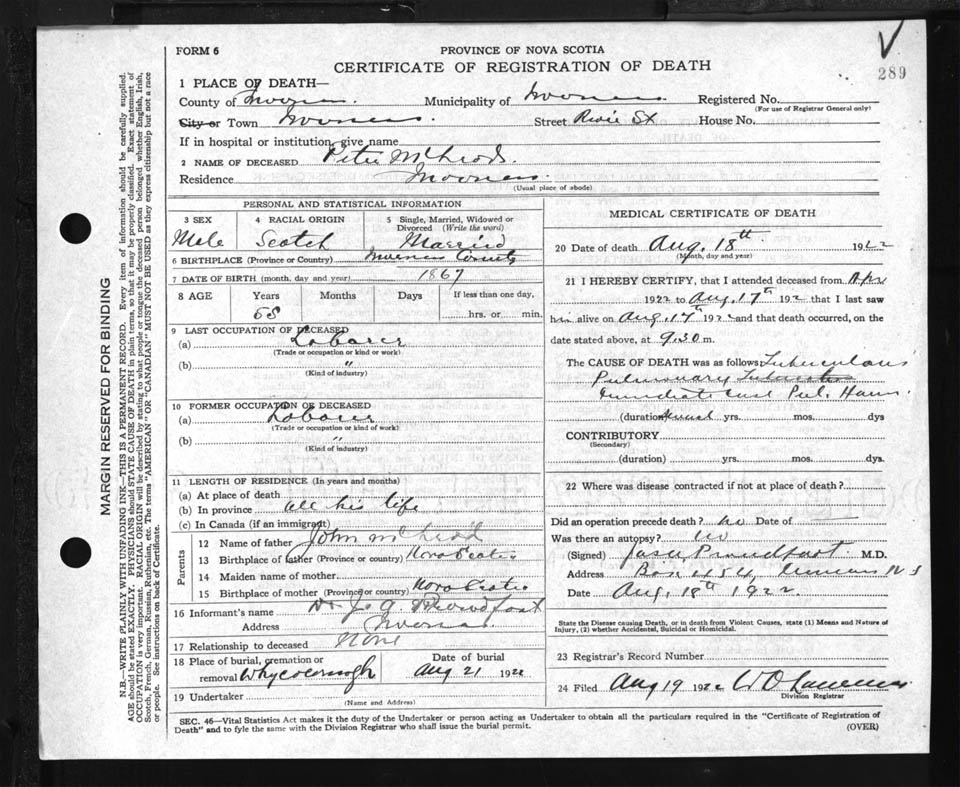 289
FORM 6
PROVINCE OF NOVA SCOTIA
CERTIFICATE OF REGISTRATION OF DEATH
1 PLACE OF DEATH—
County of Inverness. Municipality of Inverness. Registered No.
(For use of Registrar General only)
City or Town Inverness. Street St House No.
If in hospital or institution, give name
2 NAME OF DECEASED Peter McLeod.
Residence Inverness.
(Usual place of abode)
PERSONAL AND STATISTICAL INFORMATION
3 SEX 4 RACIAL ORIGIN 5 Single, Married, Widowed or
Divorced (Write the word)
Male Scotch Married
6 BIRTHPLACE (Province or Country) Inverness County
7 DATE OF BIRTH (month, day and year) 1867
8 AGE Years Months Days If less than one day,
hrs. or min.
9 LAST OCCUPATION OF DECEASED
(a) Laborer
(Trade or occupation or kind or work)
(b) "
(Kind of industry)
10 FORMER OCCUPATION OF DECEASED
(a) Laborer
(Trade or occupation or kind of work)
(b) "
(Kind of industry)
11 LENGTH OF RESIDENCE (In years and months)
(a) At place of death
(b) In province all his life
(c) In Canada (if an immigrant)
Parents
12 Name of father John McLeod
13 Birthplace of father (Province or country) Nova Scotia
14 Maiden name of mother
15 Birthplace of mother (Province or country) Nova Scotia
16 Informant's name Dr. J. A. Proudfoot
Address Inverness.
17 Relationship to deceased None
18 Place of burial, cremation or Date of burial
removal Whycocomagh Aug 21 1922
19 Undertaker
(Name and Address)
MEDICAL CERTIFICATE OF DEATH
20 Date of death Aug. 18th 1922
(Month, day and year)
21 I HEREBY CERTIFY, that I attended deceased from Apr
1922 to Aug. 17th 1922 that I last saw
him alive on Aug. 17th 1922 and that death occurred, on
date stated above, at 9.30 m.
The CAUSE OF DEATH was as follows
Pulmonary
Immediate cause Pul. Haem.
(duration) yrs. mos. dys
CONTRIBUTORY
(Secondary)
(duration) yrs. mos. dys.
22 Where was disease contracted if not at place of death?
Did an operation precede death? no Date of
Was there an autopsy? no
(Signed) Proudfoot M.D.
Address Box 454, Inverness N S
Date Aug. 18th 1922.
State the Disease causing Death, or in death from Violent Causes, state (1) Means and Nature of
Injury, (2) whether Accidental, Suicidal or Homicidal.
23 Registrar's Record Number
24 Filed Aug 19 1922
Division Registrar
SEC. 46—Vital Statistics Act makes it the duty of the Undertaker or person acting as Undertaker to obtain all the particulars required in the "Certificate of Registration of
Death" and to fyle the same with the Division Registrar who shall issue the burial permit.
(OVER)
MARGIN RESERVED FOR BINDING
N.B.—WRITE PLAINLY WITH UNFADING INK—THIS IS A PERMANENT RECORD. Every item of information should be carefully supplied.
AGE should be stated EXACTLY. PHYSICIANS should STATE CAUSE OF DEATH in plain terms, so that it may be properly classified. Exact statement of
OCCUPATION is very important. RACIAL ORIGIN will be described by stating to what people or tongue the deceased person belonged whether English, Irish,
Scotch, French, German, Russian, Ruthenian, etc. The terms "AMERICAN" OR "CANADIAN" MUST NOT BE USED as they express citizenship but not a race
or people. See instructions on back of Certificate.